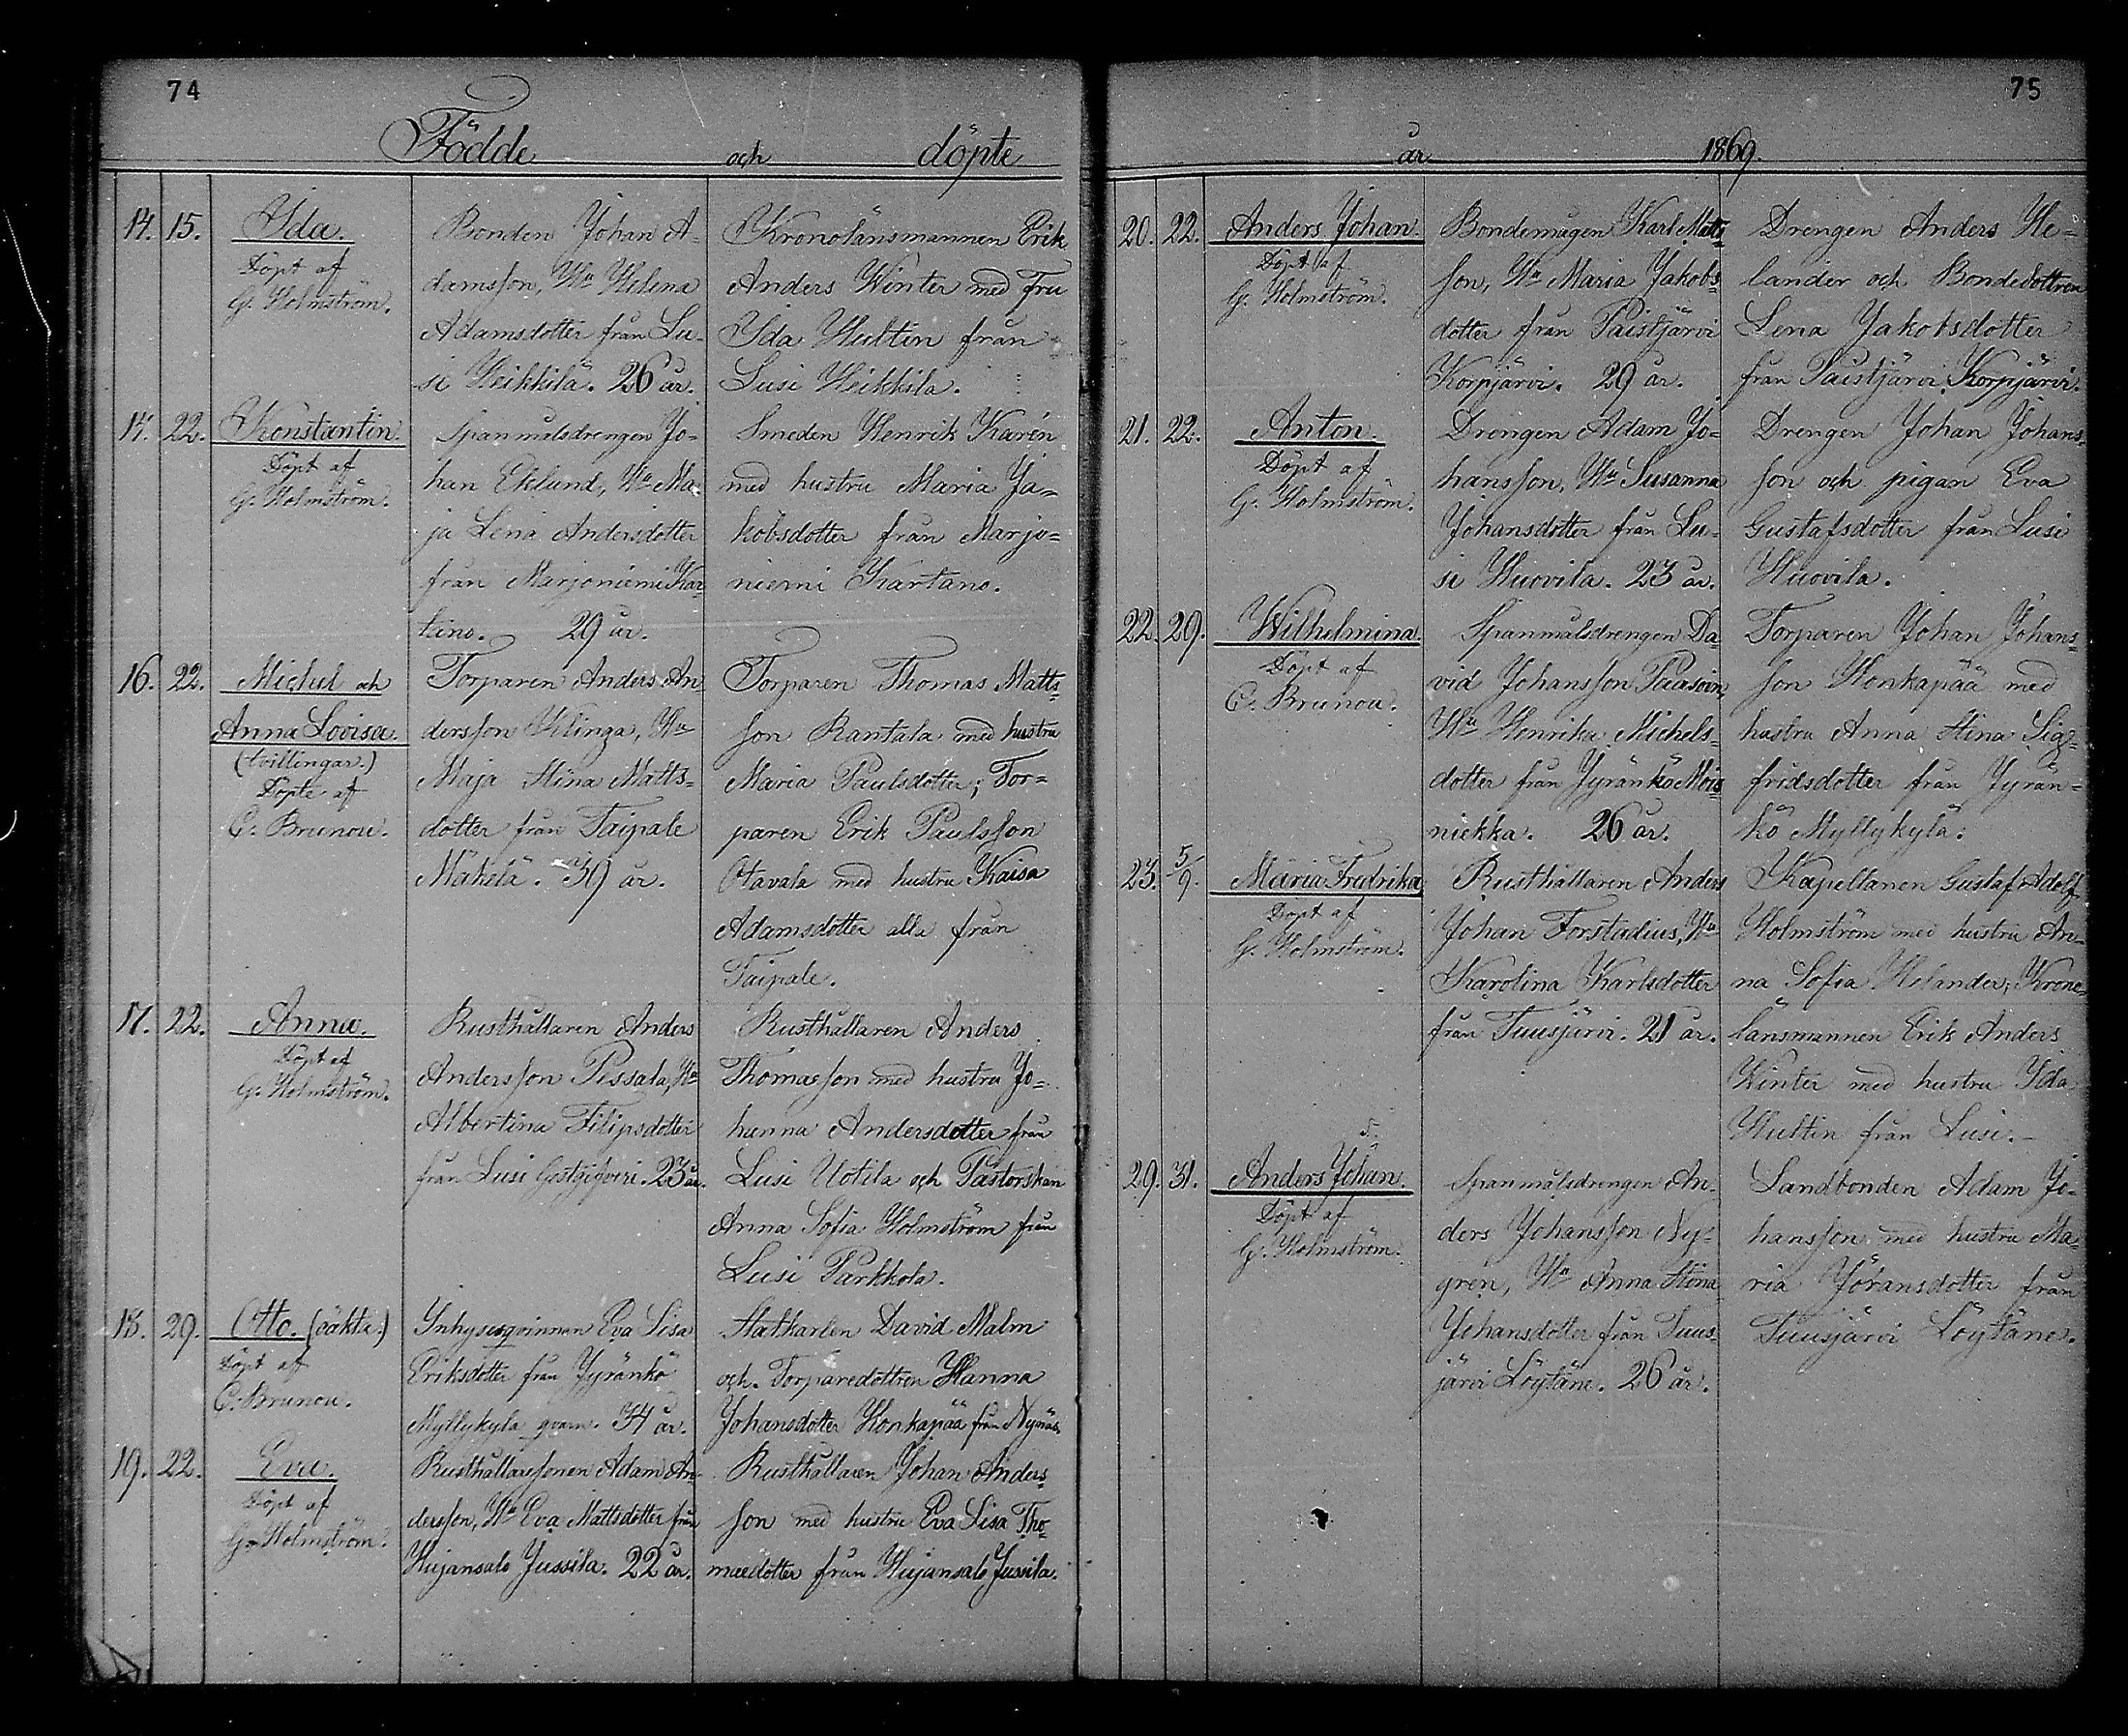 74
Födde och döpte
14. 15. Ida.
Döpt af
G. Holmström.
Bonden Johan A-
damsson, Hu Helena
Adamsdotter från Lu-
si Heikkilä. 26 år.
Kronolänsmannen Erik
Anders Winter med Fru
Ida Hultin från
Lusi Heikkilä.
14. 22. Konstantin.
Döpt af
G. Holmström.
Spanmålsdrengen Jo-
han Eklund, Hu Ma-
ja Lena Andersdotter
från Marjoniemi Kar-
tano. 29 år.
Smeden Henrik Karén
med hustru Maria Ja-
kobsdotter från Marjo-
niemi Kartano.
16. 22. Michel och
Anna Lovisa.
(tvillingar.)
Döpte af
C. Brunou.
Torparen Anders An-
dersson Kilinga, Hu
Maja Stina Matts-
dotter från Taipale
Mäkelä. 39 år.
Torparen Thomas Matts-
son Rantala med hustru
Maria Paulsdotter; Tor-
paren Erik Paulsson
Otavala med hustru Kaisa
Adamsdotter alla från
Taipale.
17. 22. Anna.
Döpt af
G. Holmström.
Rusthållaren Anders
Andersson Pessala, Hu
Albertina Filipsdotter
från Lusi Gestgifveri. 23 år.
Rusthållaren Anders
Thomasson med hustru Jo-
hanna Andersdotter från
Lusi Uotila och Pastorskan
Anna Sofia Holmström från
Lusi Parkkola.
18. 29. Otto. (oäkta.)
Döpt af
C. Brunou.
Inhysesqvinnan Eva Lisa
Eriksdotter från Jyränkö
Myllykylä qvarn. 34 år.
Statkarlen David Malm
och Torparedottren Hanna
Johansdotter Honkapää från
19. 22. Eva.
Döpt af
G. Holmström.
Rusthållaresonen Adam An-
dersson, Hu Eva Mattsdotter från
Hujansalo Jussila. 22 år.
Rusthållaren Johan Anders-
son med hustru Eva Lisa Tho-
maedotter från Hujansalo Jussila.
75
år 1869.
20. 22. Anders Johan.
Döpt af
G. Holmström.
Bondemågen Karl Matts-
son, Hu Maria Jakobs-
dotter från Paistjärvi
Korpjärvi. 29 år.
Drengen Anders He-
lander och Bondedottren
Lena Jakobsdotter
från Paistjärvi Korpjärvi.
21. 22. Anton.
Döpt af
G. Holmström.
Drengen Adam Jo-
hansson, Hu Susanna
Johansdotter från Lu-
si Huovila. 23 år.
Drengen Johan Johans-
son och pigan Eva
Gustafsdotter från Lusi
Huovila.
22. 29. Wilhelmina.
Döpt af
C. Brunou.
Spanmålsdrengen Da-
vid Johansson Paasoin
Hu Henrika Michels-
dotter från Jyränkö Mois-
niekka. 26 år.
Torparen Johan Johans-
son Honkapää med
hustru Anna Stina Sig-
fridsdotter från Jyrän-
kö Myllykylä.
23. 5/9. Maria Fredrika
Döpt af
G. Holmström.
Rusthållaren Anders
Johan Forstadius, Hu
Karolina Karlsdotter
från Tuusjärvi. 21 år.
Kapellanen Gustaf Adolf
Holmström med hustru An-
na Sofia Helander; Krono-
länsmannen Erik Anders
Winter med hustru Ida
Hultin från Lusi.-
29. 31. Anders Johan.
Döpt af
G. Holmström.
Spanmålsdrengen An-
ders Johansson Ny-
gren, Hu Anna Stina
Johansdotter från Tuus-
järvi Löytänä. 26 år.
Landbonden Adam Jo-
hansson med hustru Ma-
ria Göransdotter från
Tuusjärvi Löytänä.